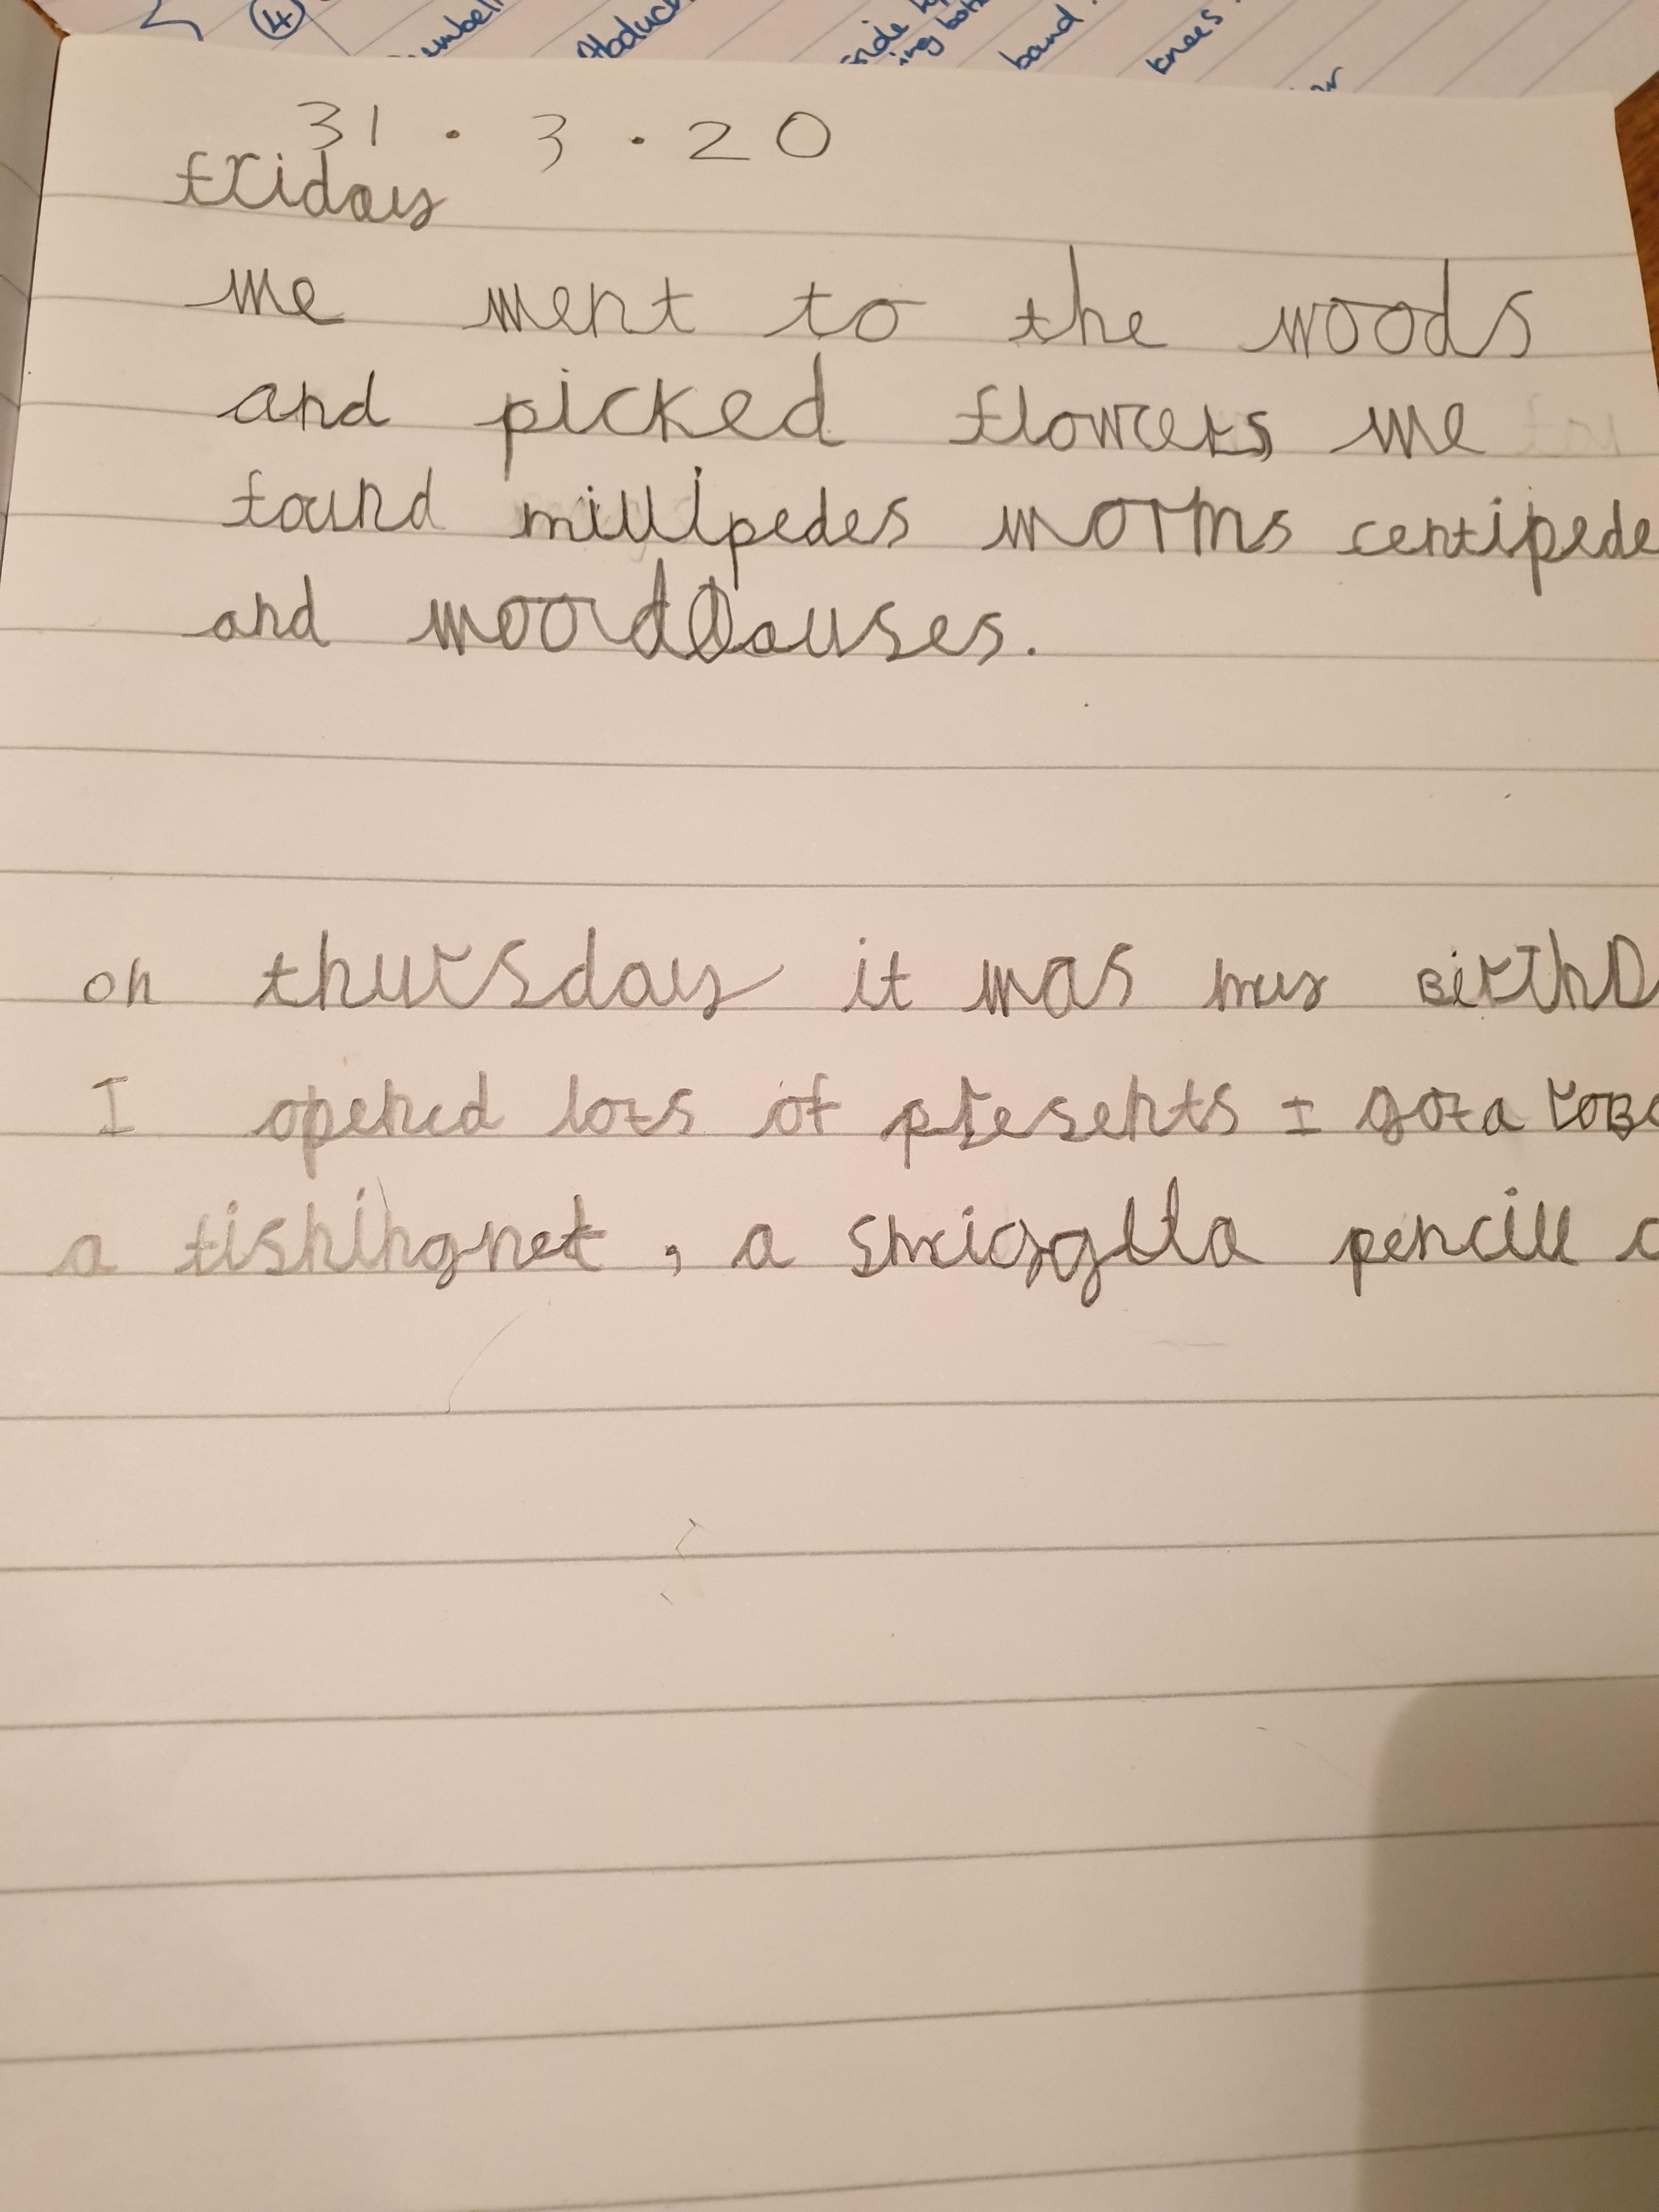 ④
Abduct
knees
band.
31.3.20
friday
we went to the woods
and picked flowers we
found millipedes worms centipede
and woodlouses.
on thursday it was my BirthD
I opened lots of presents I got a
a fishingnet, a smigglla pencill